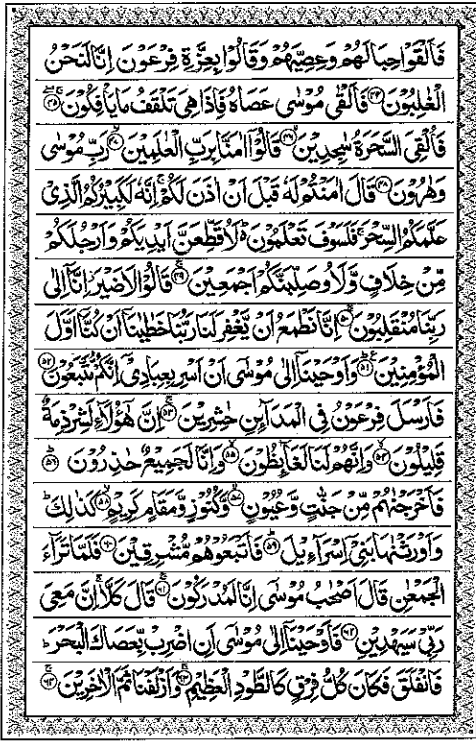 فَاَلۡقَوۡا حِبَالَهُمۡ وَعِصِيَّهُمۡ وَقَالُوۡا بِعِزَّةِ فِرۡعَوۡنَ اِنَّا لَنَحۡنُ
الۡغٰلِبُوۡنَ ﴿۴۴﴾ فَاَلۡقٰى مُوۡسٰى عَصَاهُ فَاِذَا هِىَ تَلۡقَفُ مَا يَاۡفِكُوۡنَ ﴿۴۵﴾
فَاُلۡقِىَ السَّحَرَةُ سٰجِدِيۡنَ ﴿۴۶﴾ قَالُوۡۤا اٰمَنَّا بِرَبِّ الۡعٰلَمِيۡنَ ﴿۴۷﴾ رَبِّ مُوۡسٰى
وَهٰرُوۡنَ ﴿۴۸﴾ قَالَ اٰمَنۡتُمۡ لَهٗ قَبۡلَ اَنۡ اٰذَنَ لَكُمۡ اِنَّهٗ لَكَبِيۡرُكُمُ الَّذِىۡ
عَلَّمَكُمُ السِّحۡرَ فَلَسَوۡفَ تَعۡلَمُوۡنَ لَاُقَطِّعَنَّ اَيۡدِيَكُمۡ وَاَرۡجُلَكُمۡ
مِّنۡ خِلَافٍ وَّلَاُوصَلِّبَنَّكُمۡ اَجۡمَعِيۡنَ ﴿۴۹﴾ قَالُوۡا لَا ضَيۡرَ اِنَّاۤ اِلٰى
رَبِّنَا مُنۡقَلِبُوۡنَ ﴿۵۰﴾ اِنَّا نَطۡمَعُ اَنۡ يَّغۡفِرَ لَنَا رَبُّنَا خَطٰيٰنَاۤ اَنۡ كُنَّاۤ اَوَّلَ
الۡمُؤۡمِنِيۡنَ ﴿۵۱﴾ وَاَوۡحَيۡنَاۤ اِلٰى مُوۡسٰٓى اَنۡ اَسۡرِ بِعِبَادِىۡۤ اِنَّكُمۡ مُّتَّبَعُوۡنَ ﴿۵۲﴾
فَاَرۡسَلَ فِرۡعَوۡنُ فِى الۡمَدَآئِنِ حٰشِرِيۡنَ ﴿۵۳﴾ اِنَّ هٰٓؤُلَاۤءِ لَشِرۡذِمَةٌ
قَلِيۡلُوۡنَ ﴿۵۴﴾ وَاِنَّهُمۡ لَنَا لَغَآئِظُوۡنَ ﴿۵۵﴾ وَاِنَّا لَجَمِيۡعٌ حٰذِرُوۡنَ ﴿۵۶﴾
فَاَخۡرَجۡنٰهُمۡ مِّنۡ جَنّٰتٍ وَّعُيُوۡنٍ ﴿۵۷﴾ وَّكُنُوۡزٍ وَّمَقَامٍ كَرِيۡمٍ ﴿۵۸﴾ كَذٰلِكَ
وَاَوۡرَثۡنٰهَا بَنِىۡۤ اِسۡرَآءِيۡلَ ﴿۵۹﴾ فَاَتۡبَعُوۡهُمۡ مُّشۡرِقِيۡنَ ﴿۶۰﴾ فَلَمَّا تَرَآءَ
الۡجَمۡعٰنِ قَالَ اَصۡحٰبُ مُوۡسٰٓى اِنَّا لَمُدۡرَكُوۡنَ ﴿۶۱﴾ قَالَ كَلَّا اِنَّ مَعِىَ
رَبِّىۡ سَيَهۡدِيۡنِ ﴿۶۲﴾ فَاَوۡحَيۡنَاۤ اِلٰى مُوۡسٰٓى اَنِ اضۡرِبۡ بِّعَصَاكَ الۡبَحۡرَ
فَانۡفَلَقَ فَكَانَ كُلُّ فِرۡقٍ كَالطَّوۡدِ الۡعَظِيۡمِ ﴿۶۳﴾ وَاَزۡلَفۡنَا ثَمَّ الۡاٰخَرِيۡنَ ﴿۶۴﴾